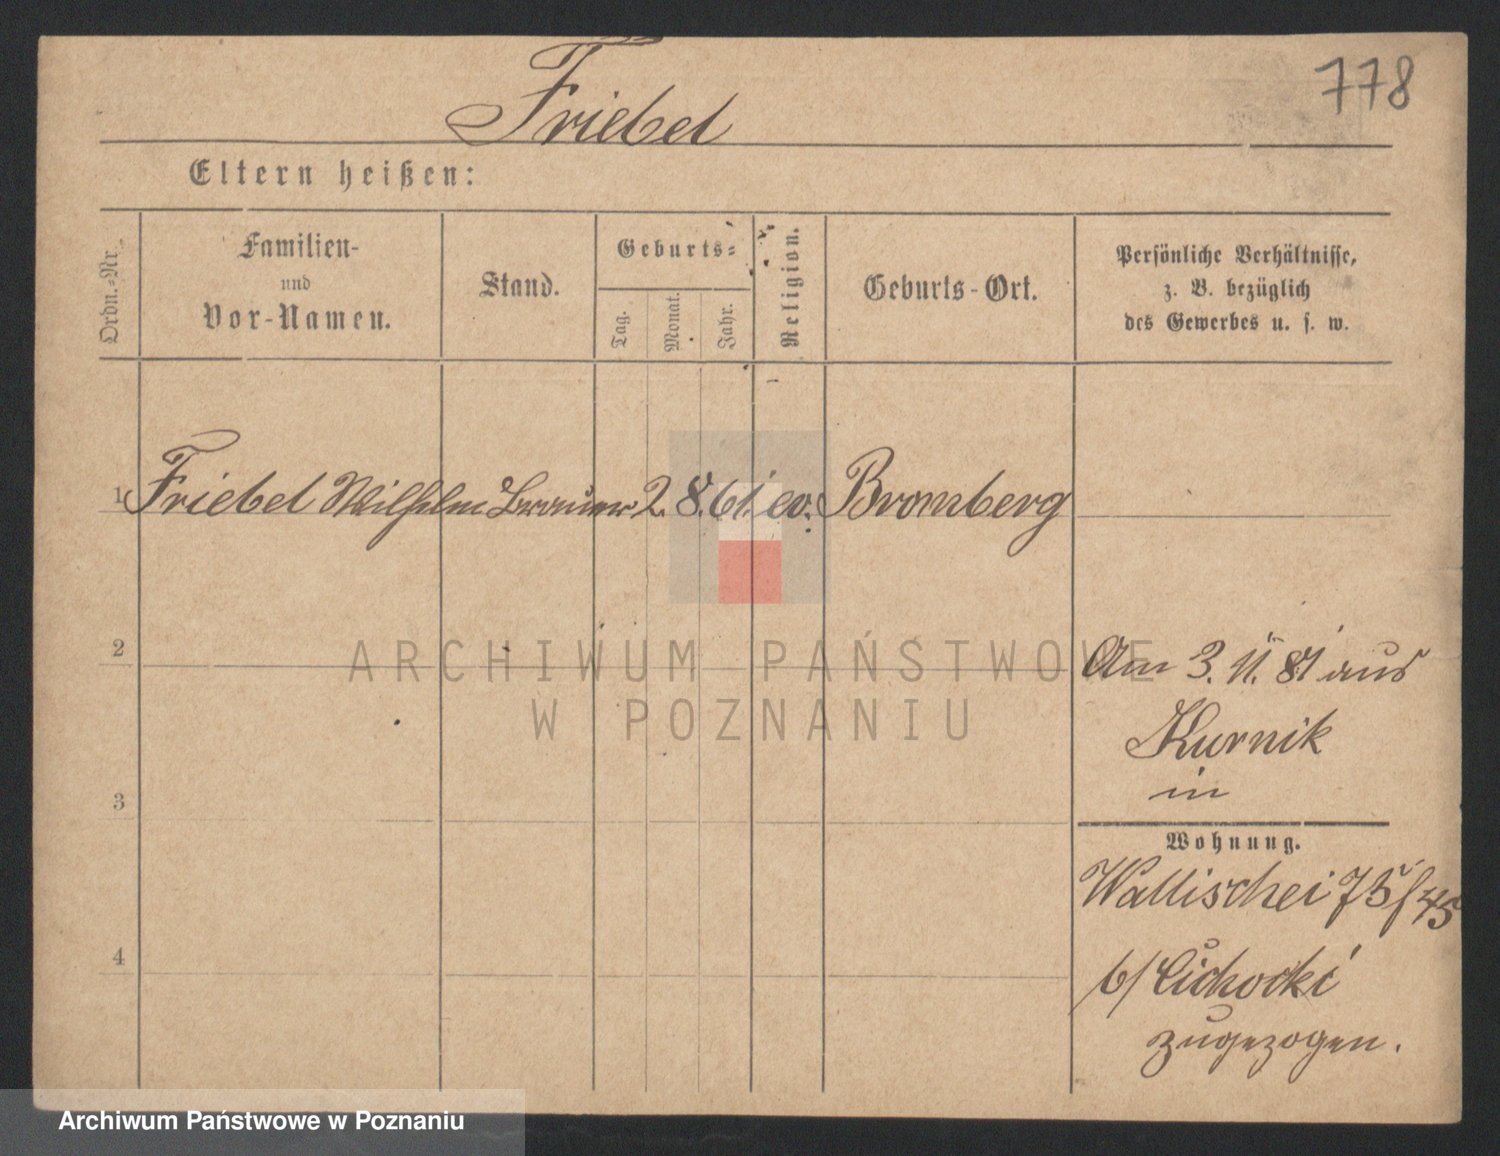 778
Friebel
Eltern heißen:
Ordn.-Nr.
Familien-
und
Vor-Namen.
Stand.
Geburts-
Tag.
Monat.
Jahr.
Religion.
Geburts-Ort.
Persönliche Verhältnisse,
z. B. bezüglich
des Gewerbes u. s. w.
1 Friebel Wilhelm Brauer 2. 8. 61. ev. Bromberg
2
3
4
Am 3. 11. 81 aus
Kurnik
in
Wohnung.
Wallischei 75/45
b/ Cichocki
zugezogen.
ARCHIWUM PAŃSTWOWE
W POZNANIU
Archiwum Państwowe w Poznaniu